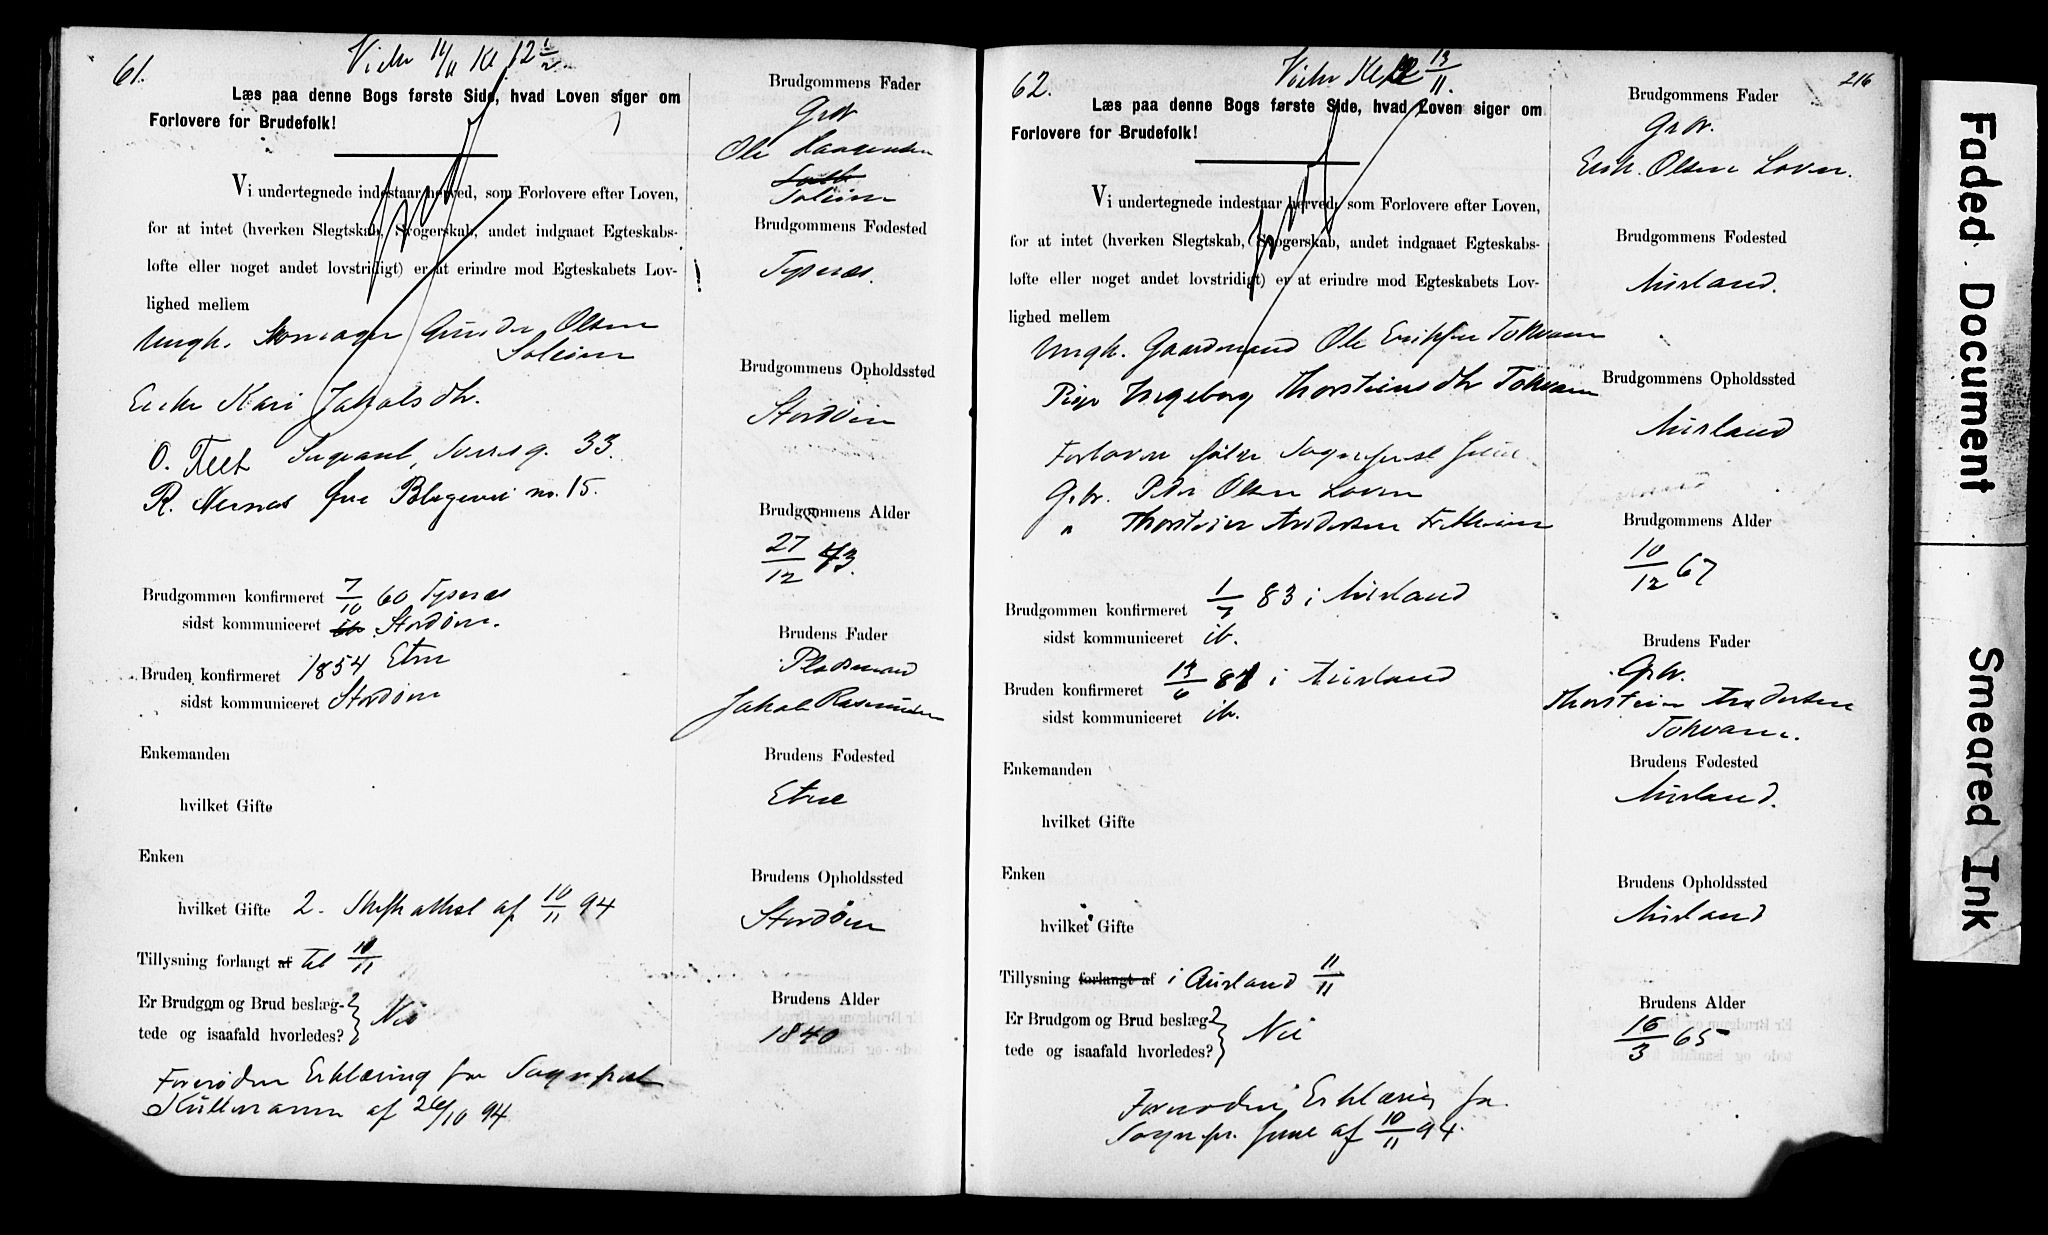 61.
Vies 14/11 Kl 12 1/2
Læs paa denne Bogs første Side, hvad Loven siger om
Forlovere for Brudefolk!
Vi undertegnede indestaar herved, som Forlovere efter Loven,
for at intet (hverken Slegtskab, Svogerskab, andet indgaaet Egteskabs-
løfte eller noget andet lovstridigt) er at erindre mod Egteskabets Lov-
lighed mellem
Ungk. Gunder Olsen
Soleim
Enke Kari Jakobsdtr.
O. Tveit Sergeant, 33.
R. Nernæs Øvre Blegevei no. 15.
Brudgommen konfirmeret 7/10 60 Tysvær
sidst kommuniceret Stordøen.
Bruden konfirmeret 1854 Etne
sidst kommuniceret Stordøen
Enkemanden
hvilket Gifte
Enken
hvilket Gifte 2. Skifteattest af 10/11 94
Tillysning forlangt af til 10/11
Er Brudgom og Brud beslæg-
tede og isaafald hvorledes? Nei
Fornøden Erklæring fra Sognepræst
Kullmann af 26/10 94
Brudgommens Fader
Grdr.
Ole
Soleim
Brudgommens Fødested
Tysvær.
Brudgommens Opholdssted
Stordøen
Brudgommens Alder
27/12 43.
Brudens Fader
Pladsmand
Jakob Rasmussen
Brudens Fødested
Etne
Brudens Opholdssted
Stordøen
Brudens Alder
1840
62.
Vies Kl 12 13/11.
216
Læs paa denne Bogs første Side, hvad Loven siger om
Forlovere for Brudefolk!
Vi undertegnede indestaar herved, som Forlovere efter Loven,
for at intet (hverken Slegtskab, Svogerskab, andet indgaaet Egteskabs-
løfte eller noget andet lovstridigt) er at erindre mod Egteskabets Lov-
lighed mellem
Ungk. Gaardmand Ole Eriksen Tokvam
Pige Ingeborg Thorsteinsdtr Tokvam
Forlovere ifølge Sognepræst
Grbr. Peder Olsen Loven
" Thorstein Andersen Fretheim
Brudgommen konfirmeret 1/7 83 i Aurland
sidst kommuniceret ib.
Bruden konfirmeret 13/6 81 i Aurland
sidst kommuniceret ib.
Enkemanden
hvilket Gifte
Enken
hvilket Gifte
Tillysning forlangt af i Aurland 11/11
Er Brudgom og Brud beslæg-
tede og isaafald hvorledes? Nei
Fornøden Erklæring fra
Sognepr. af 10/11 94.
Brudgommens Fader
Grdr.
Erik Olsen Loven.
Brudgommens Fødested
Aurland.
Brudgommens Opholdssted
Aurland
Brudgommens Alder
10/12 67
Brudens Fader
Grbr.
Thorstein Andersen
Tokvam.
Brudens Fødested
Aurland.
Brudens Opholdssted
Aurland
Brudens Alder
16/3 65
Faded Document
Smeared Ink